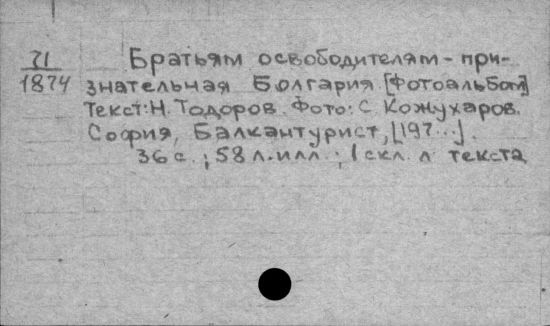 71 Братьям освободителям - при-
1874 знательная Болгария. [Фотоальбом]
Текст: Н. Тодоров. Фото: С. Кожухаров.
София, Балкантурист, [197...].
36 с.; 58 л. илл.; 1 скл. л. текста